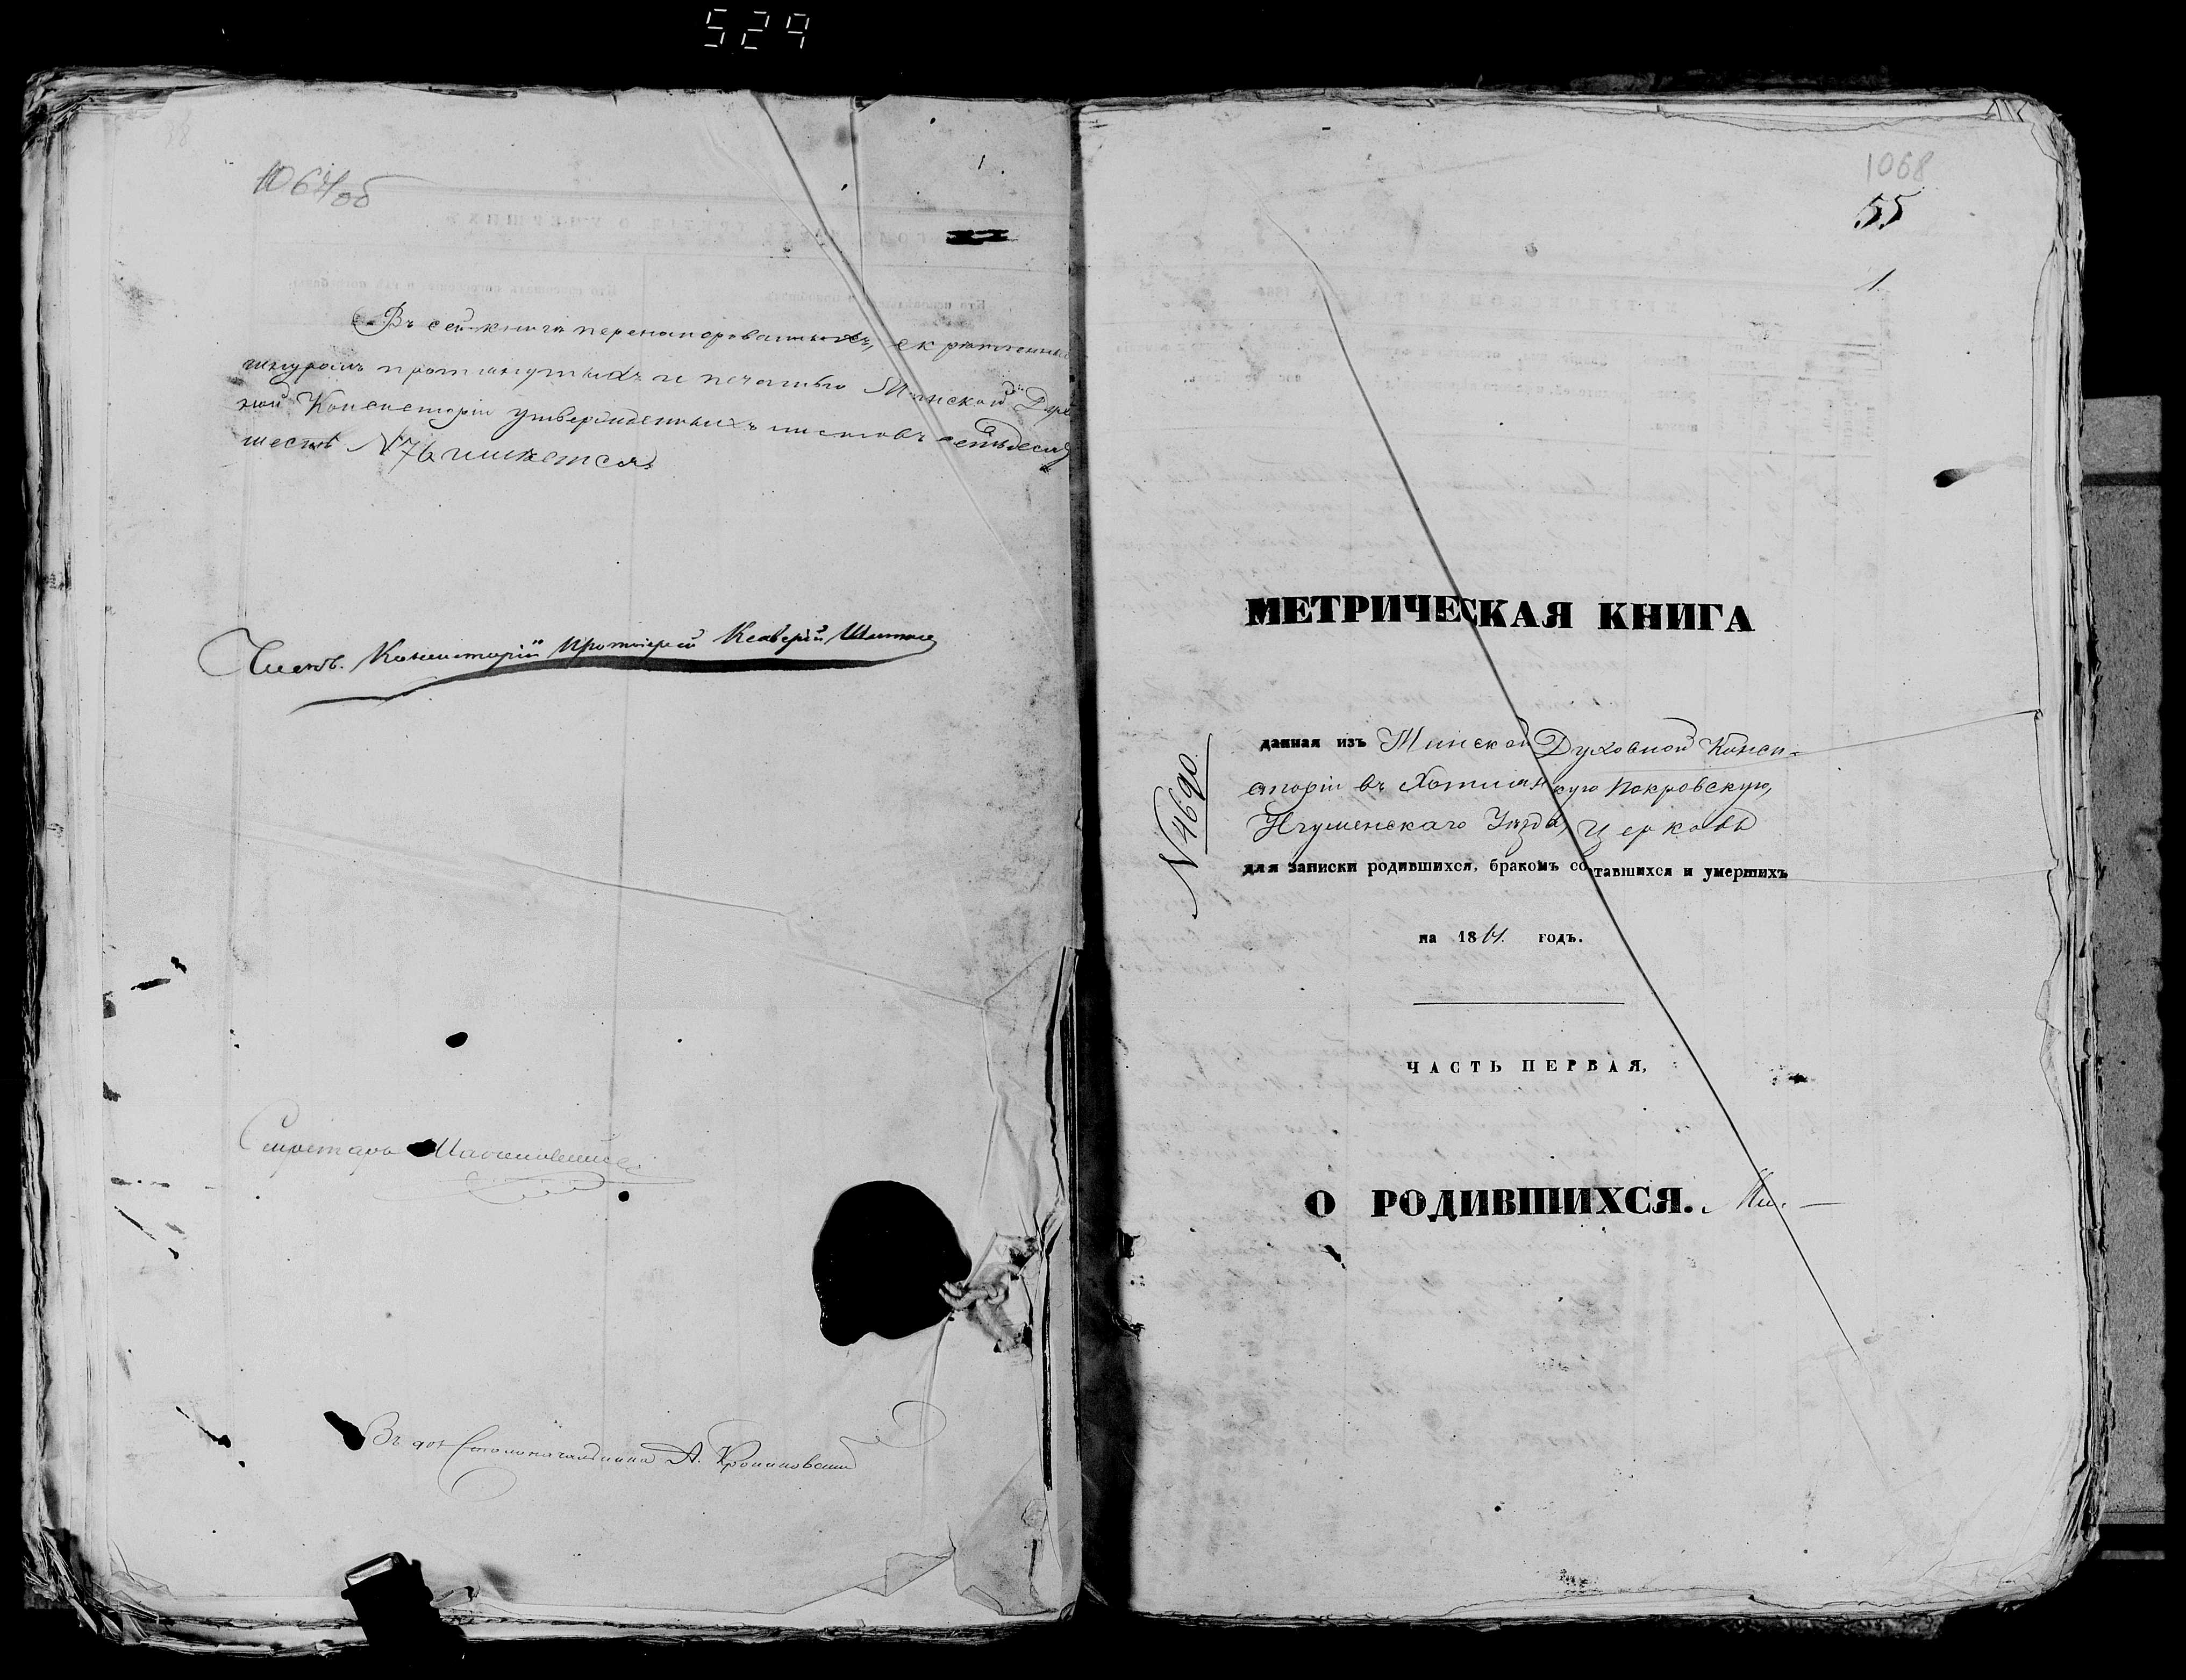 529
1064об
1.
Въ сей книгѣ перенумерованныхъ, скрѣпленныхъ
шнуромъ протянутыхъ и печатью Минской Духов
ной Консисторіи утвержденныхъ листовъ семьдесят
шесть №76 имѣется.
Членъ Консисторіи Протоіерей Ксаверій
Секретарь
Въ дол. Столоначальника А.
1068
55
1
МЕТРИЧЕСКАЯ КНИГА
данная изъ Минской Духовной Конси-
сторіи въ Хотлянскую Покровскую,
Игуменскаго Уѣзда, Церковь
для записки родившихся, бракомъ сочетавшихся и умершихъ
на 1864. годъ.
№4690.
ЧАСТЬ ПЕРВАЯ,
О РОДИВШИХСЯ.